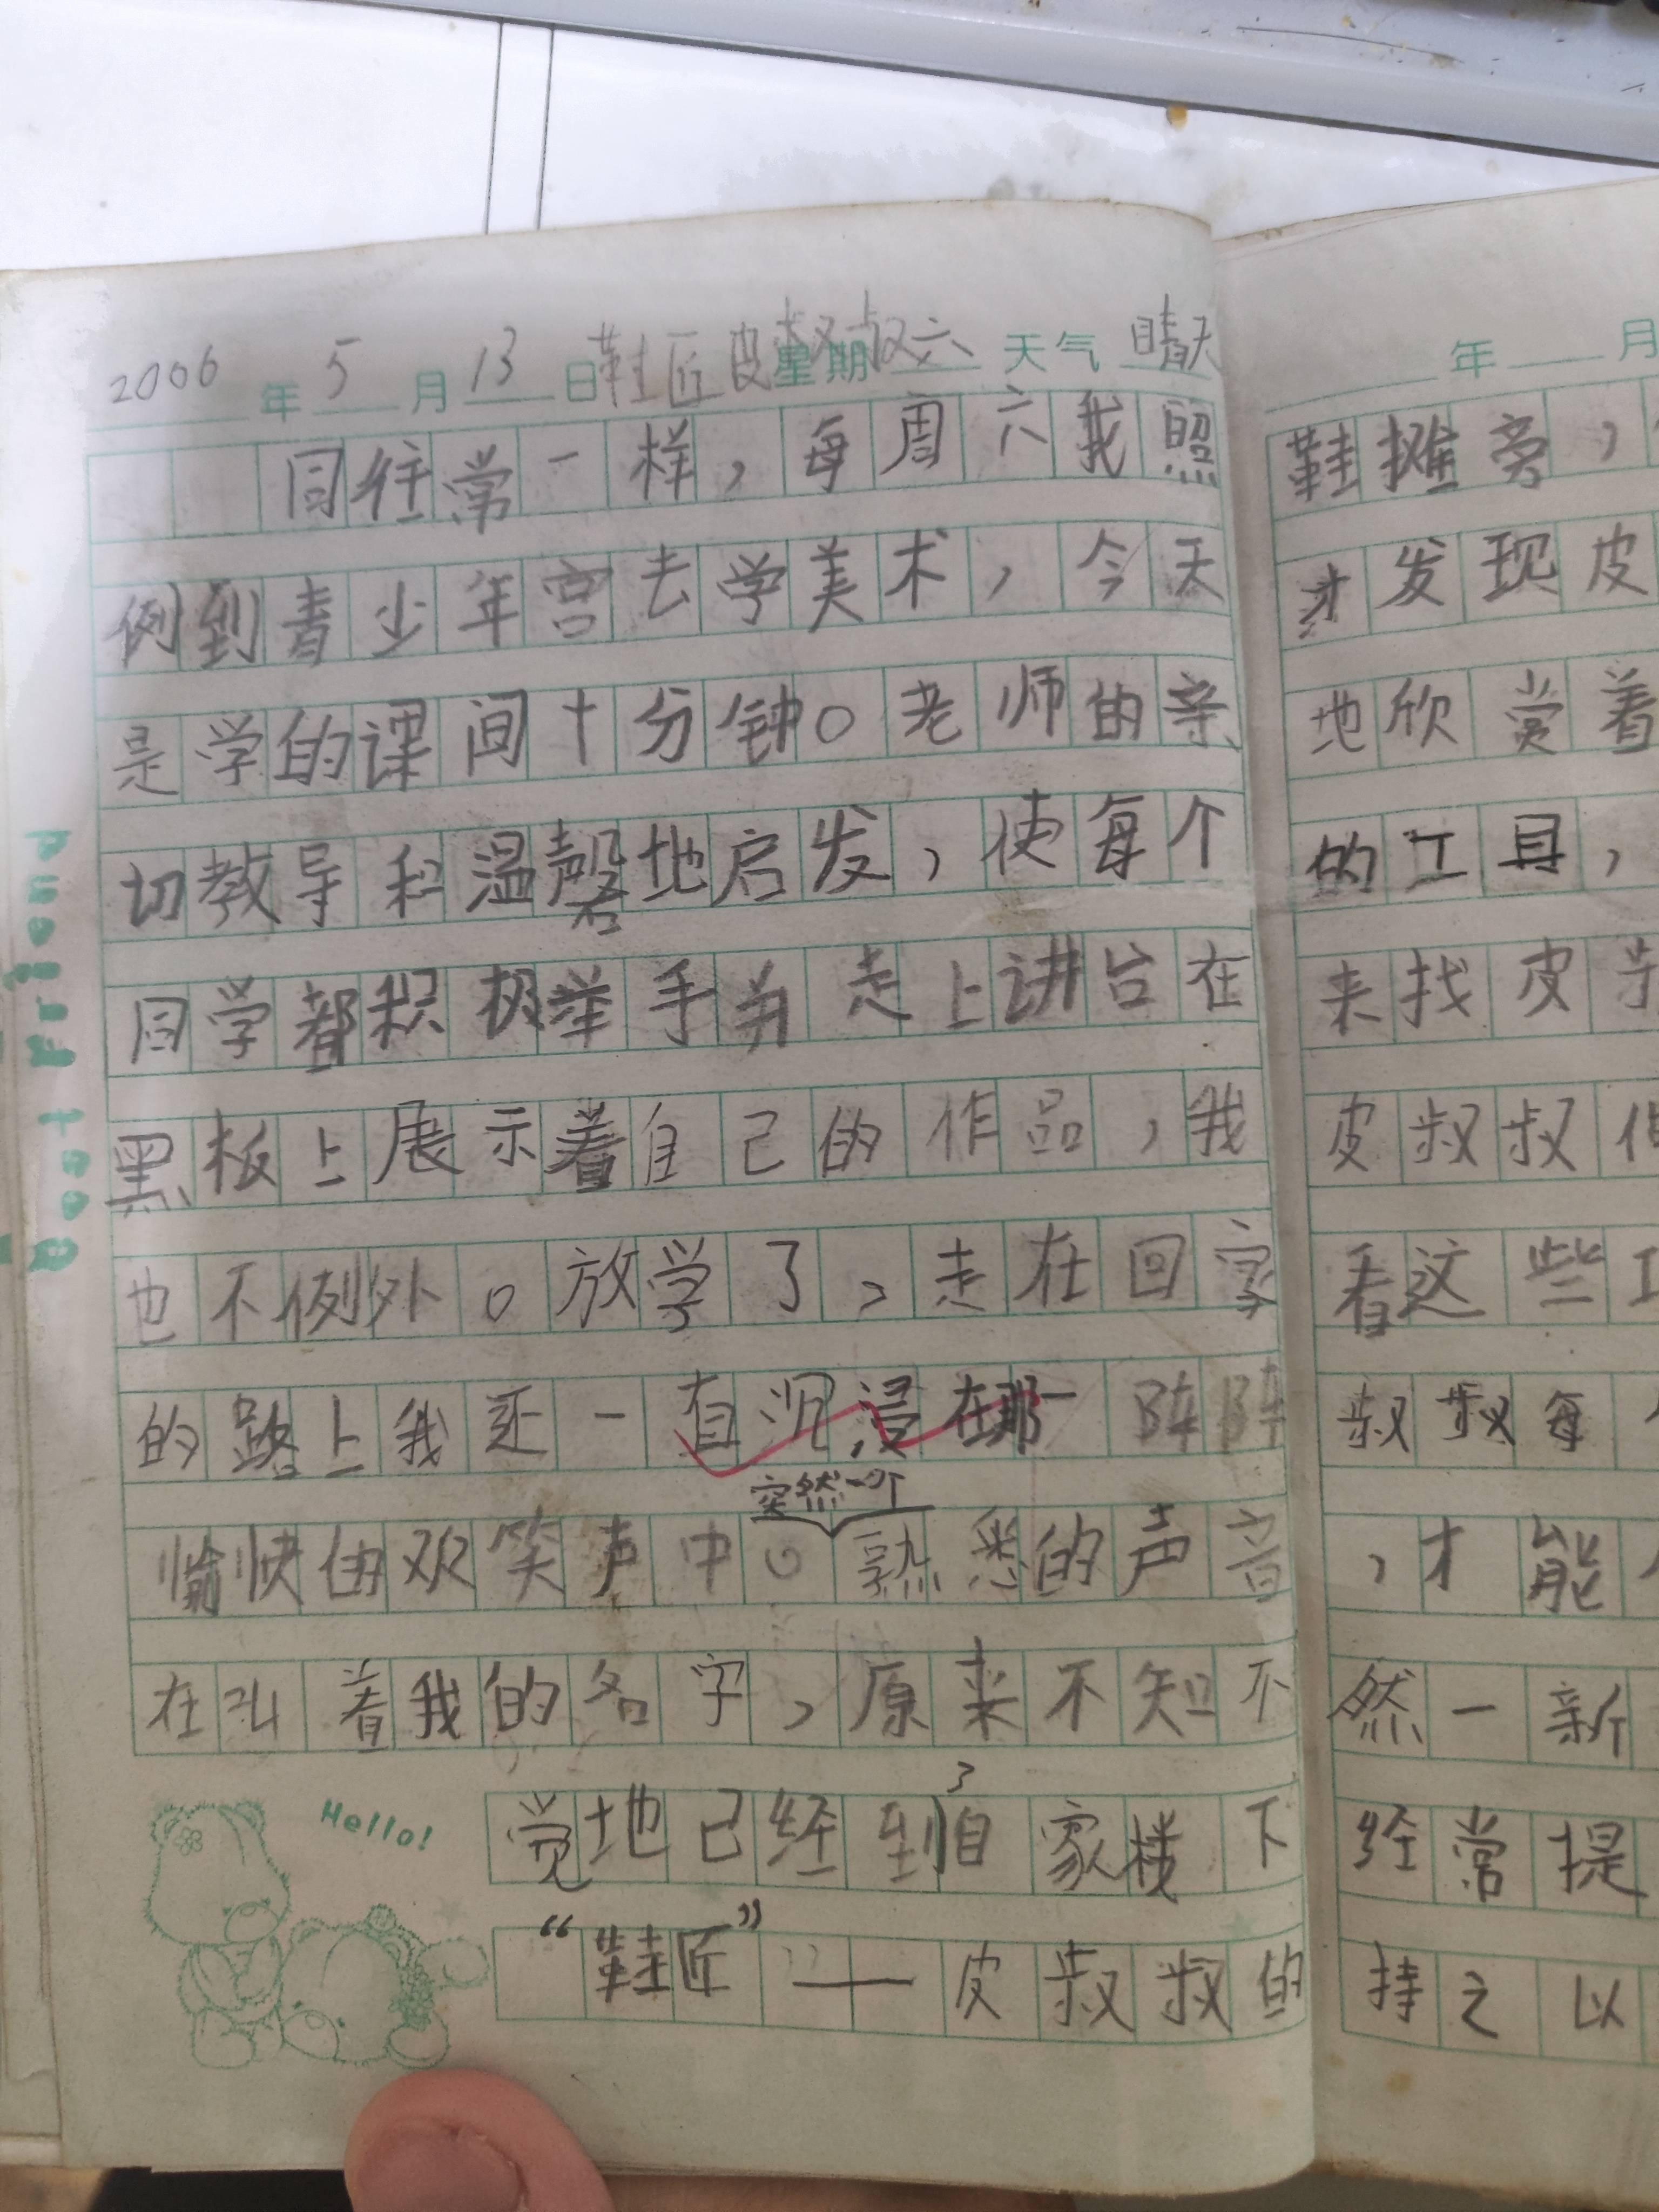 2006年5月13日 鞋匠皮叔叔 星期六 天气 晴天
同往常一样，每周六我照
例到青少年宫去学美术，今天
是学的课间十分钟。老师的亲
切教导和温馨地启发，使每个
同学都积极举手并走上讲台在
黑板上展示着自己的作品，我
也不例外。放学了，走在回家
的路上我还一直沉浸在那一阵阵
突然一个
愉快的欢笑声中。熟悉的声音
在叫着我的名字，原来不知不
觉地已经到了自家楼下
“鞋匠”——皮叔叔的
Hello!
Best Friend
年 月
鞋摊旁，
才发现皮
地欣赏着
的工具，
来找皮
皮叔叔
看这些工
叔叔每
，才能
然一新
经常提
持之以